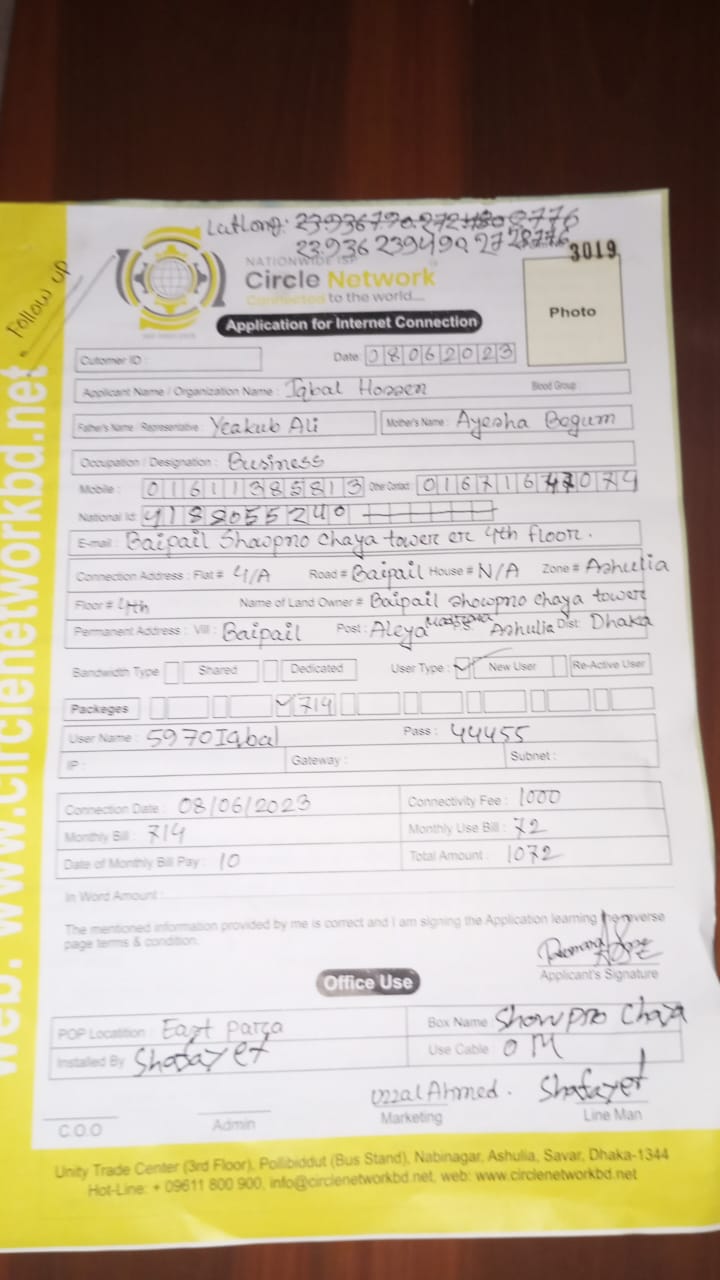 LatLong:
3019
NATIONWIDE ISP
Circle Network
Connected to the world....
Follow up
Application for Internet Connection
Photo
Cutomer ID :
Date: 08062023
Applicant Name / Organization Name : Iqbal Hossen Blood Group :
Father's Name / Representative : Yeakub Ali Mother's Name : Ayesha Begum
Occupation / Designation : Business
Mobile : 01611385813 Other Contact:
National Id:
E-mail : Baipail Showpno Chaya tower er 4th floor.
Connection Address : Flat # 4/A Road # Baipail House # N/A Zone # Ashulia
Floor # 4th Name of Land Owner # Baipail showpno chaya tower
Permanent Address : Vill : Baipail Post : Aleya Ashulia Dist: Dhaka
Bandwidth Type Shared Dedicated User Type : ✓ New User Re-Active User
Packeges ✓ 714
User Name : 5970Iqbal Pass : 44455
IP : Gateway : Subnet :
Connection Date : 08/06/2023 Connectivity Fee : 1000
Monthly Bill : 714 Monthly Use Bill : 72
Date of Monthly Bill Pay : 10 Total Amount : 1072
In Word Amount :
The mentioned information provided by me is correct and I am signing the Application learning the reverse
page terms & condition.
Applicant's Signature
Office Use
POP Locatition : East Parga Box Name : Showpno Chaya
Installed By Shafayet Use Cable : 0 M
Uzzal Ahmed. Shafayet
C.O.O Admin Marketing Line Man
Unity Trade Center (3rd Floor), Pollibiddut (Bus Stand), Nabinagar, Ashulia, Savar, Dhaka-1344
Hot-Line: + 09611 800 900, info@circlenetworkbd.net, web: www.circlenetworkbd.net
web: www.circlenetworkbd.net